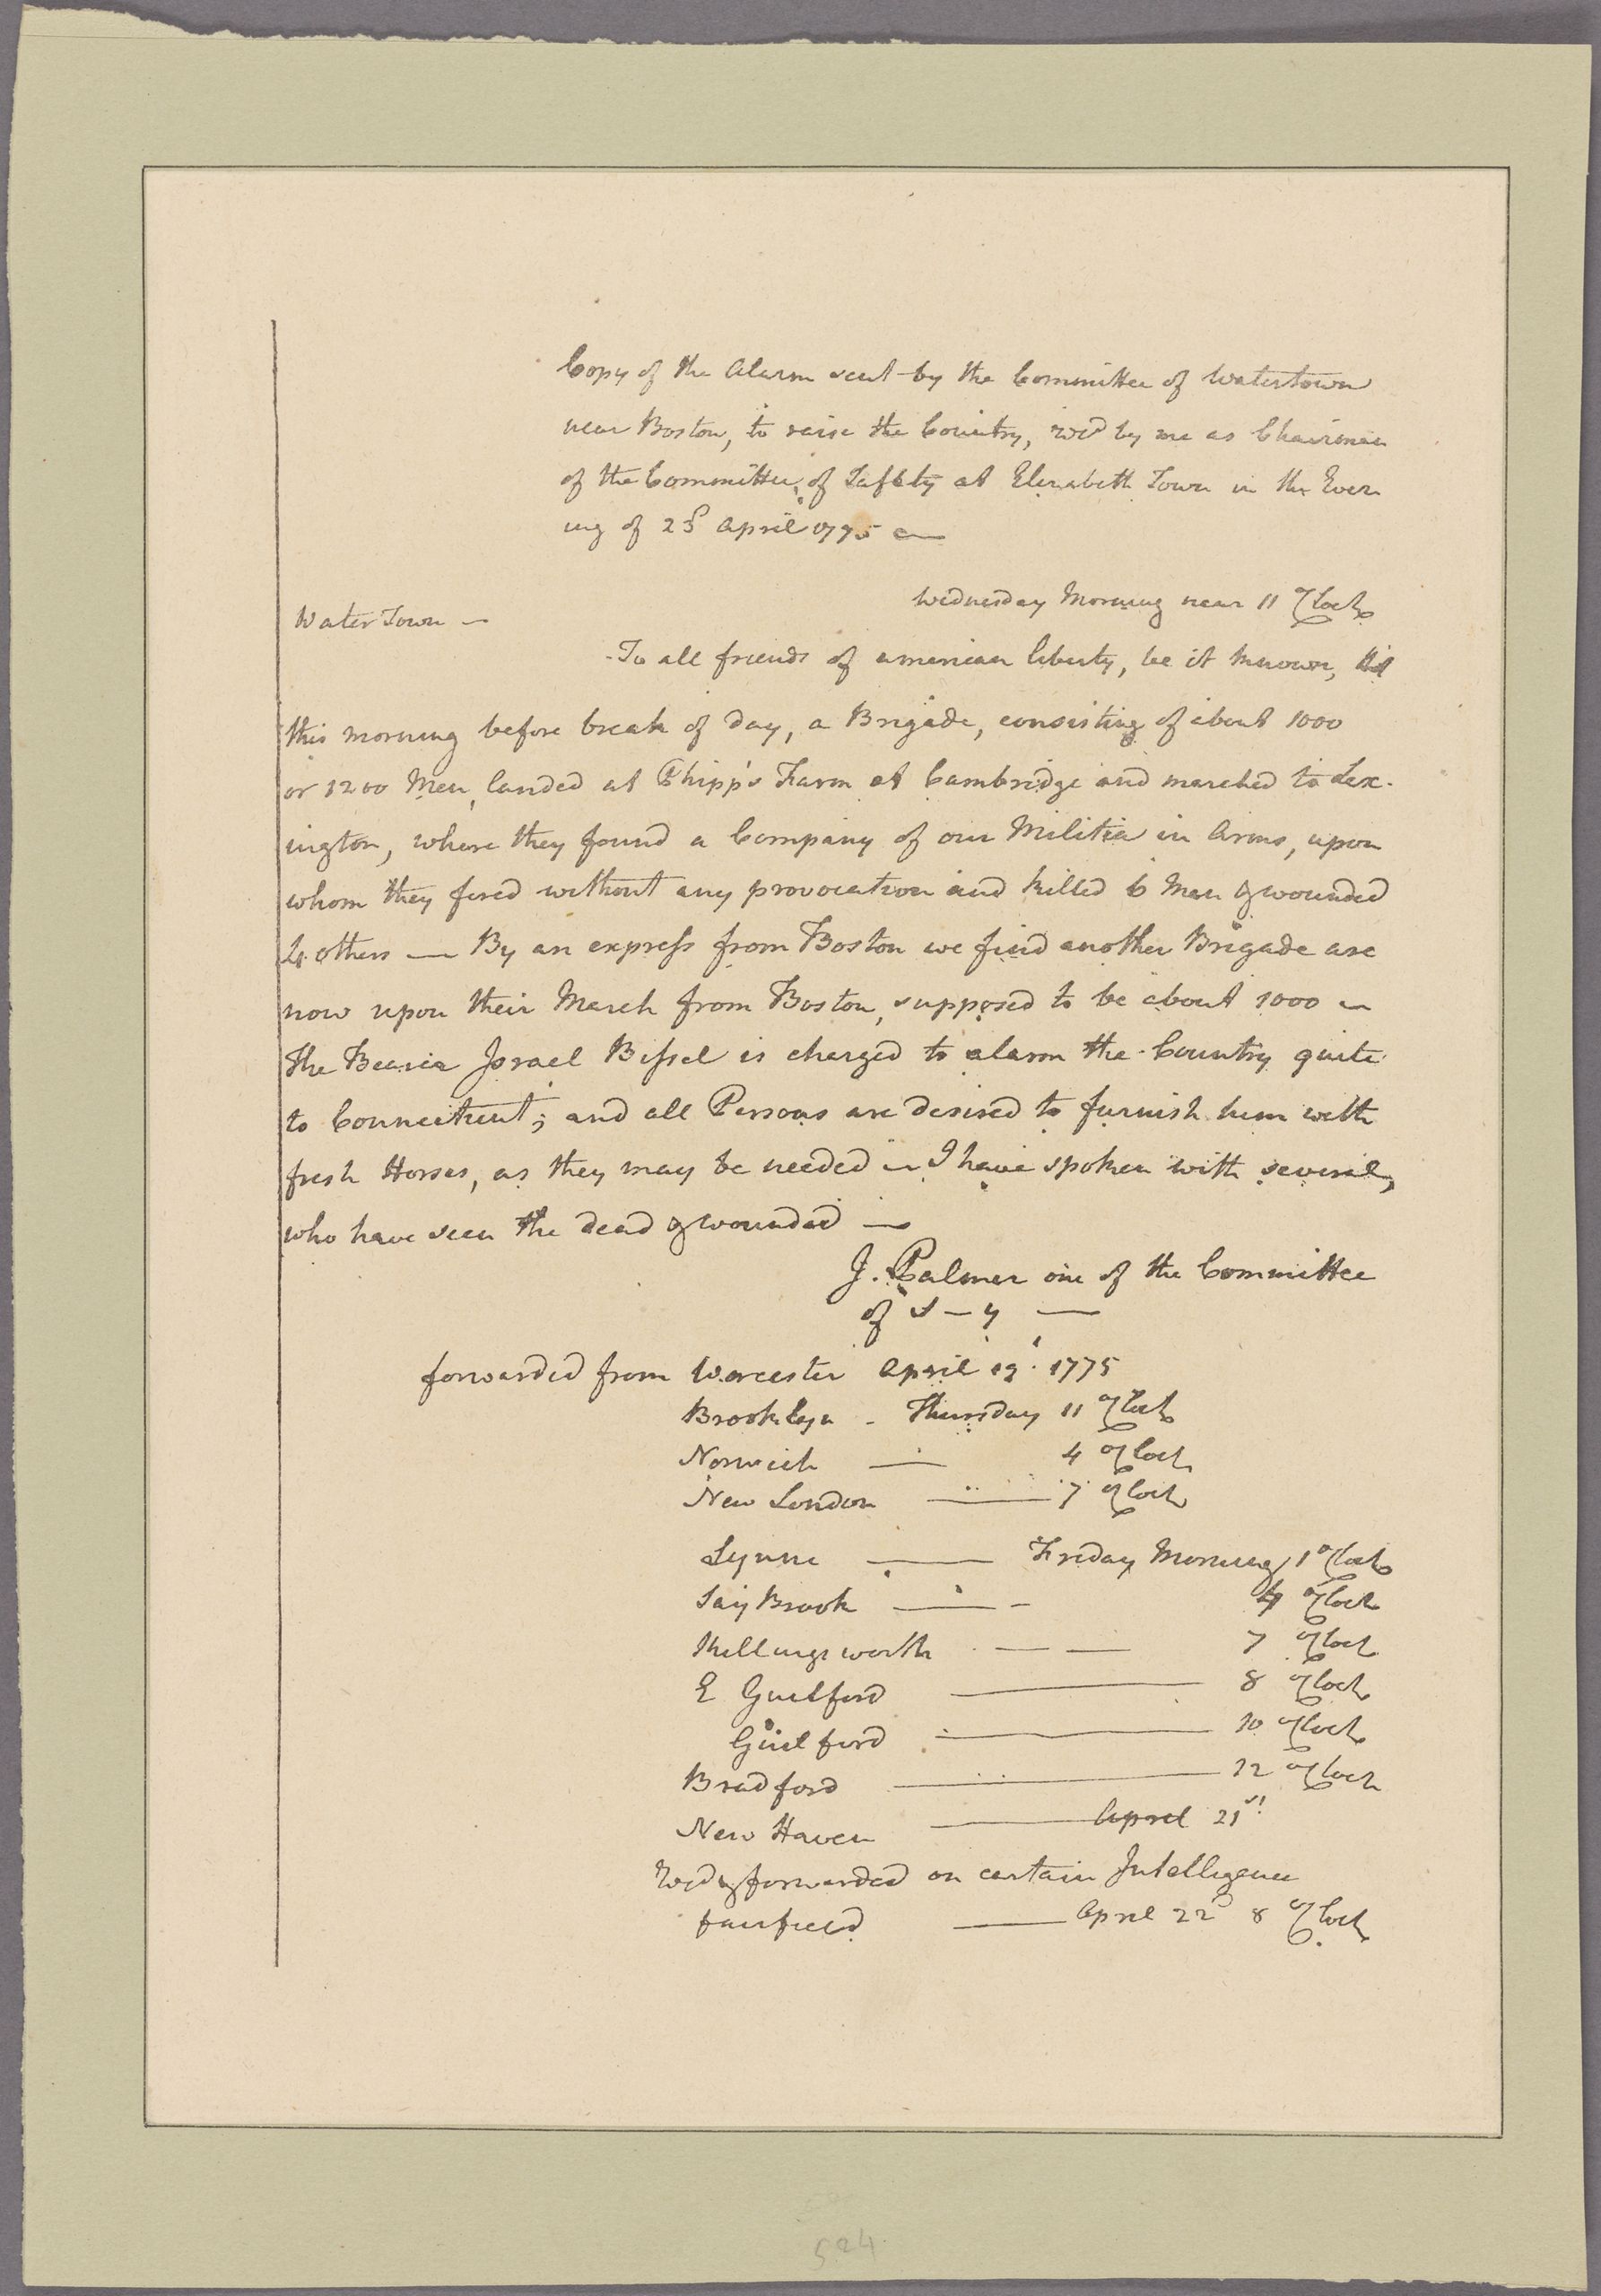 Copy of the Alarm sent by the Committee of Watertown
near Boston, to raise the Country, recd by me as Chairman
of the Committee of Safety at Elizabeth Town in the Even
ing of 23d April 1775
Wednesday Morning near 11 oClock
Water Town —
To all friends of american liberty, be it known, that
this morning before break of day, a Brigade, consisting of about 1000
or 1200 Men, landed at Phipp's Farm at Cambridge and marched to Lex-
ington, where they found a Company of our Militia in Arms, upon
whom they fired without any provocation and killed 6 Men & wounded
4 others — By an express from Boston we find another Brigade are
now upon their March from Boston, supposed to be about 1000 —
The Bearer Israel Bissel is charged to alarm the Country quite
to Connecticut; and all Persons are desired to furnish him with
fresh Horses, as they may be needed — I have spoken with several,
who have seen the dead & wounded —
J. Palmer one of the Committee
of S — y —
forwarded from Worcester April 19. 1775
Brooklyn - Thursday 11 oClock
Norwich — 4 oClock
New London — 7 oClock
Lynne — Friday Morning 1 oClock
Say Brook — - 4 oClock
Killingsworth — — 7 oClock
E Guilford — 8 oClock
Guilford — 10 oClock
Bradford — 12 oClock
New Haven — April 21st
Recd & forwarded on certain Intelligence
fairfield — April 22d 8 oClock
524